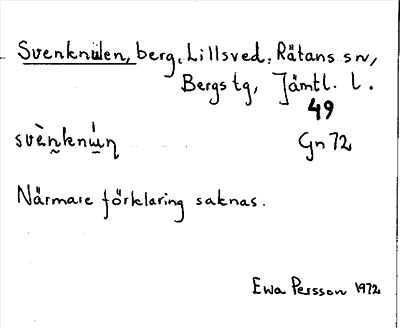 Svenknulen, berg, Lillsved, Rätans sn,
Bergs tg, Jämtl. l.
49
svènknu̇n Gn 72
Närmare förklaring saknas.
Ewa Persson 1972